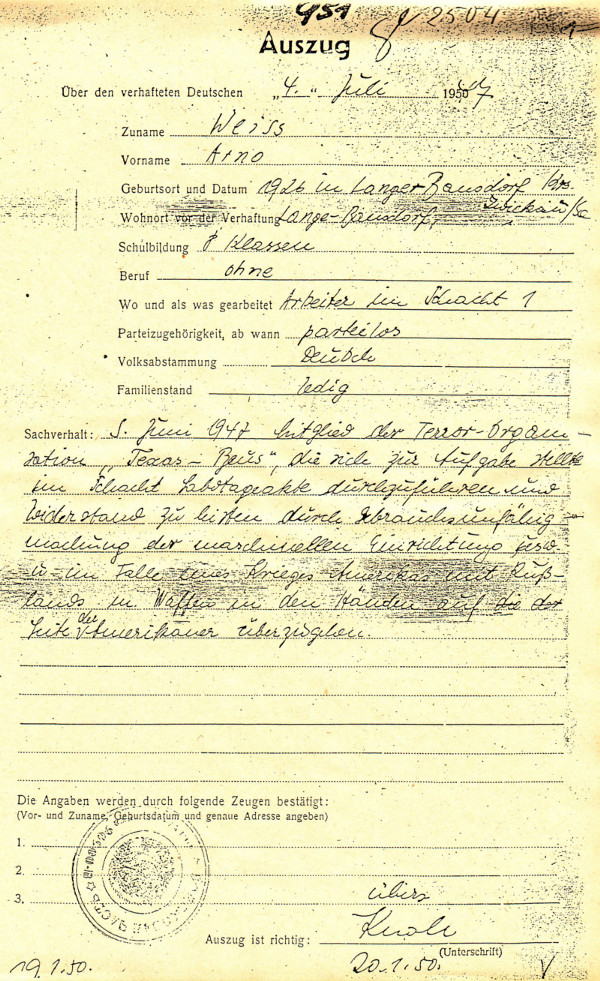 951
2504
Auszug
Über den verhafteten Deutschen „4.“ Juli 1950 47
Zuname Weiss
Vorname Arno
Geburtsort und Datum 1926 in Langer Bansdorf Krs.
Zwickau/Sa
Wohnort vor der Verhaftung Lange-Bansdorf,
Schulbildung 8 Klassen
Beruf ohne
Wo und als was gearbeitet Arbeiter im Schacht 1
Parteizugehörigkeit, ab wann parteilos
Volksabstammung Deutsch
Familienstand ledig
Sachverhalt: S. Juni 1947 Mitglied der Terror-Organi-
sation „Texas-Beus“, die sich zur Aufgabe stellte
im Schacht Sabotageakte durchzuführen und
Widerstand zu leisten durch Gebrauchsunfähig-
machung der maschinellen Einrichtung
im Falle eines Krieges Amerikas mit Ruß-
lands in Waffen in den Händen auf die der
Seite der Amerikaner überzugehen.
Die Angaben werden durch folgende Zeugen bestätigt:
(Vor- und Zuname, Geburtsdatum und genaue Adresse angeben)
1.
2.
3.
übers
Auszug ist richtig:
(Unterschrift)
19.1.50.
20.1.50.